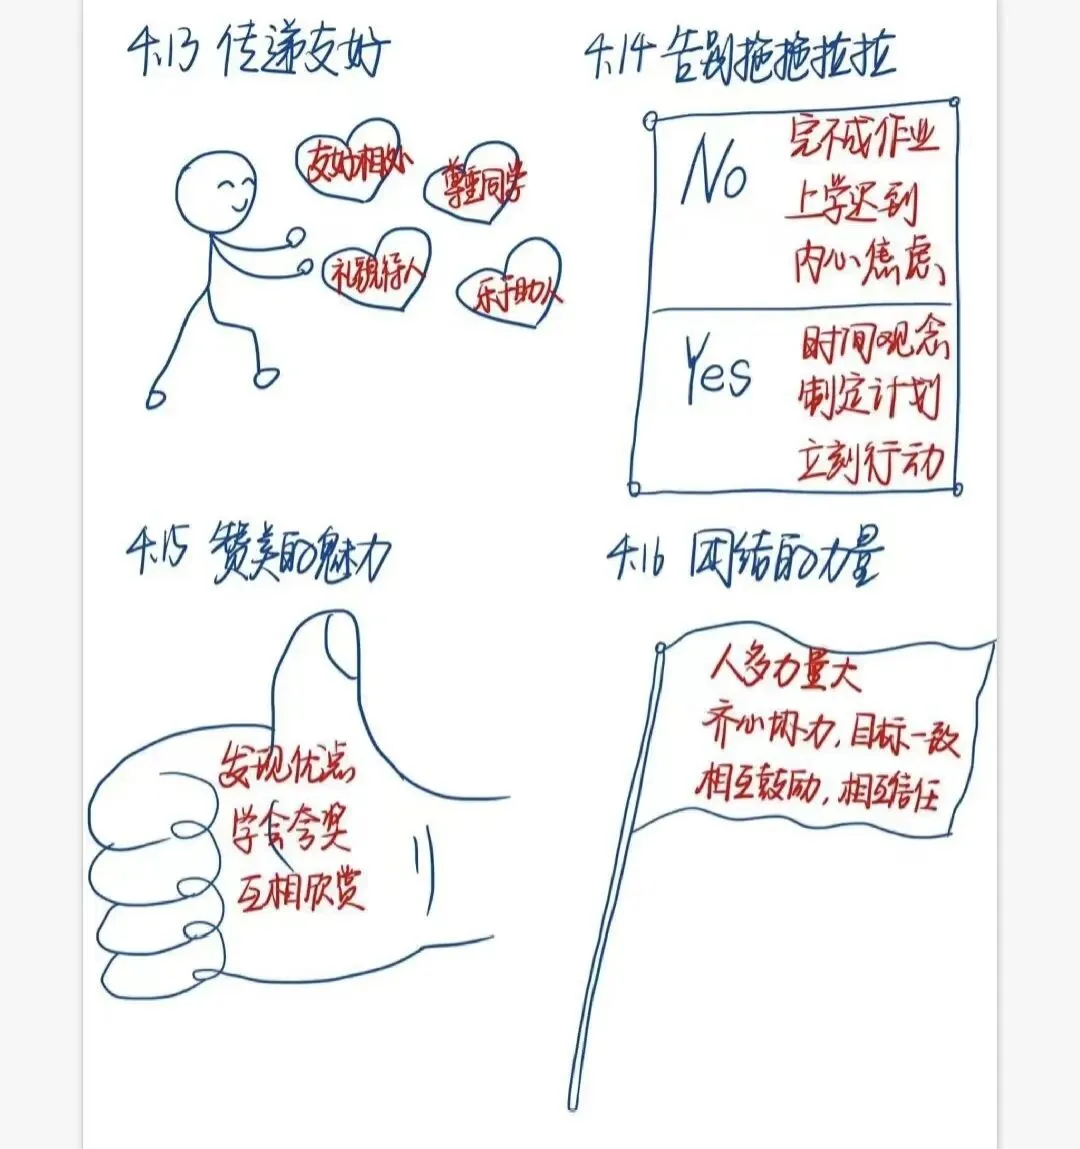 4.13 传递友好
友好相处
尊重同学
礼貌待人
乐于助人
4.14 告别拖拖拉拉
No
完不成作业
上学迟到
内心焦虑
Yes
时间观念
制定计划
立刻行动
4.15 赞美的魅力
发现优点
学会夸奖
互相欣赏
4.16 团结的力量
人多力量大
齐心协力,目标一致
相互鼓励,相互信任